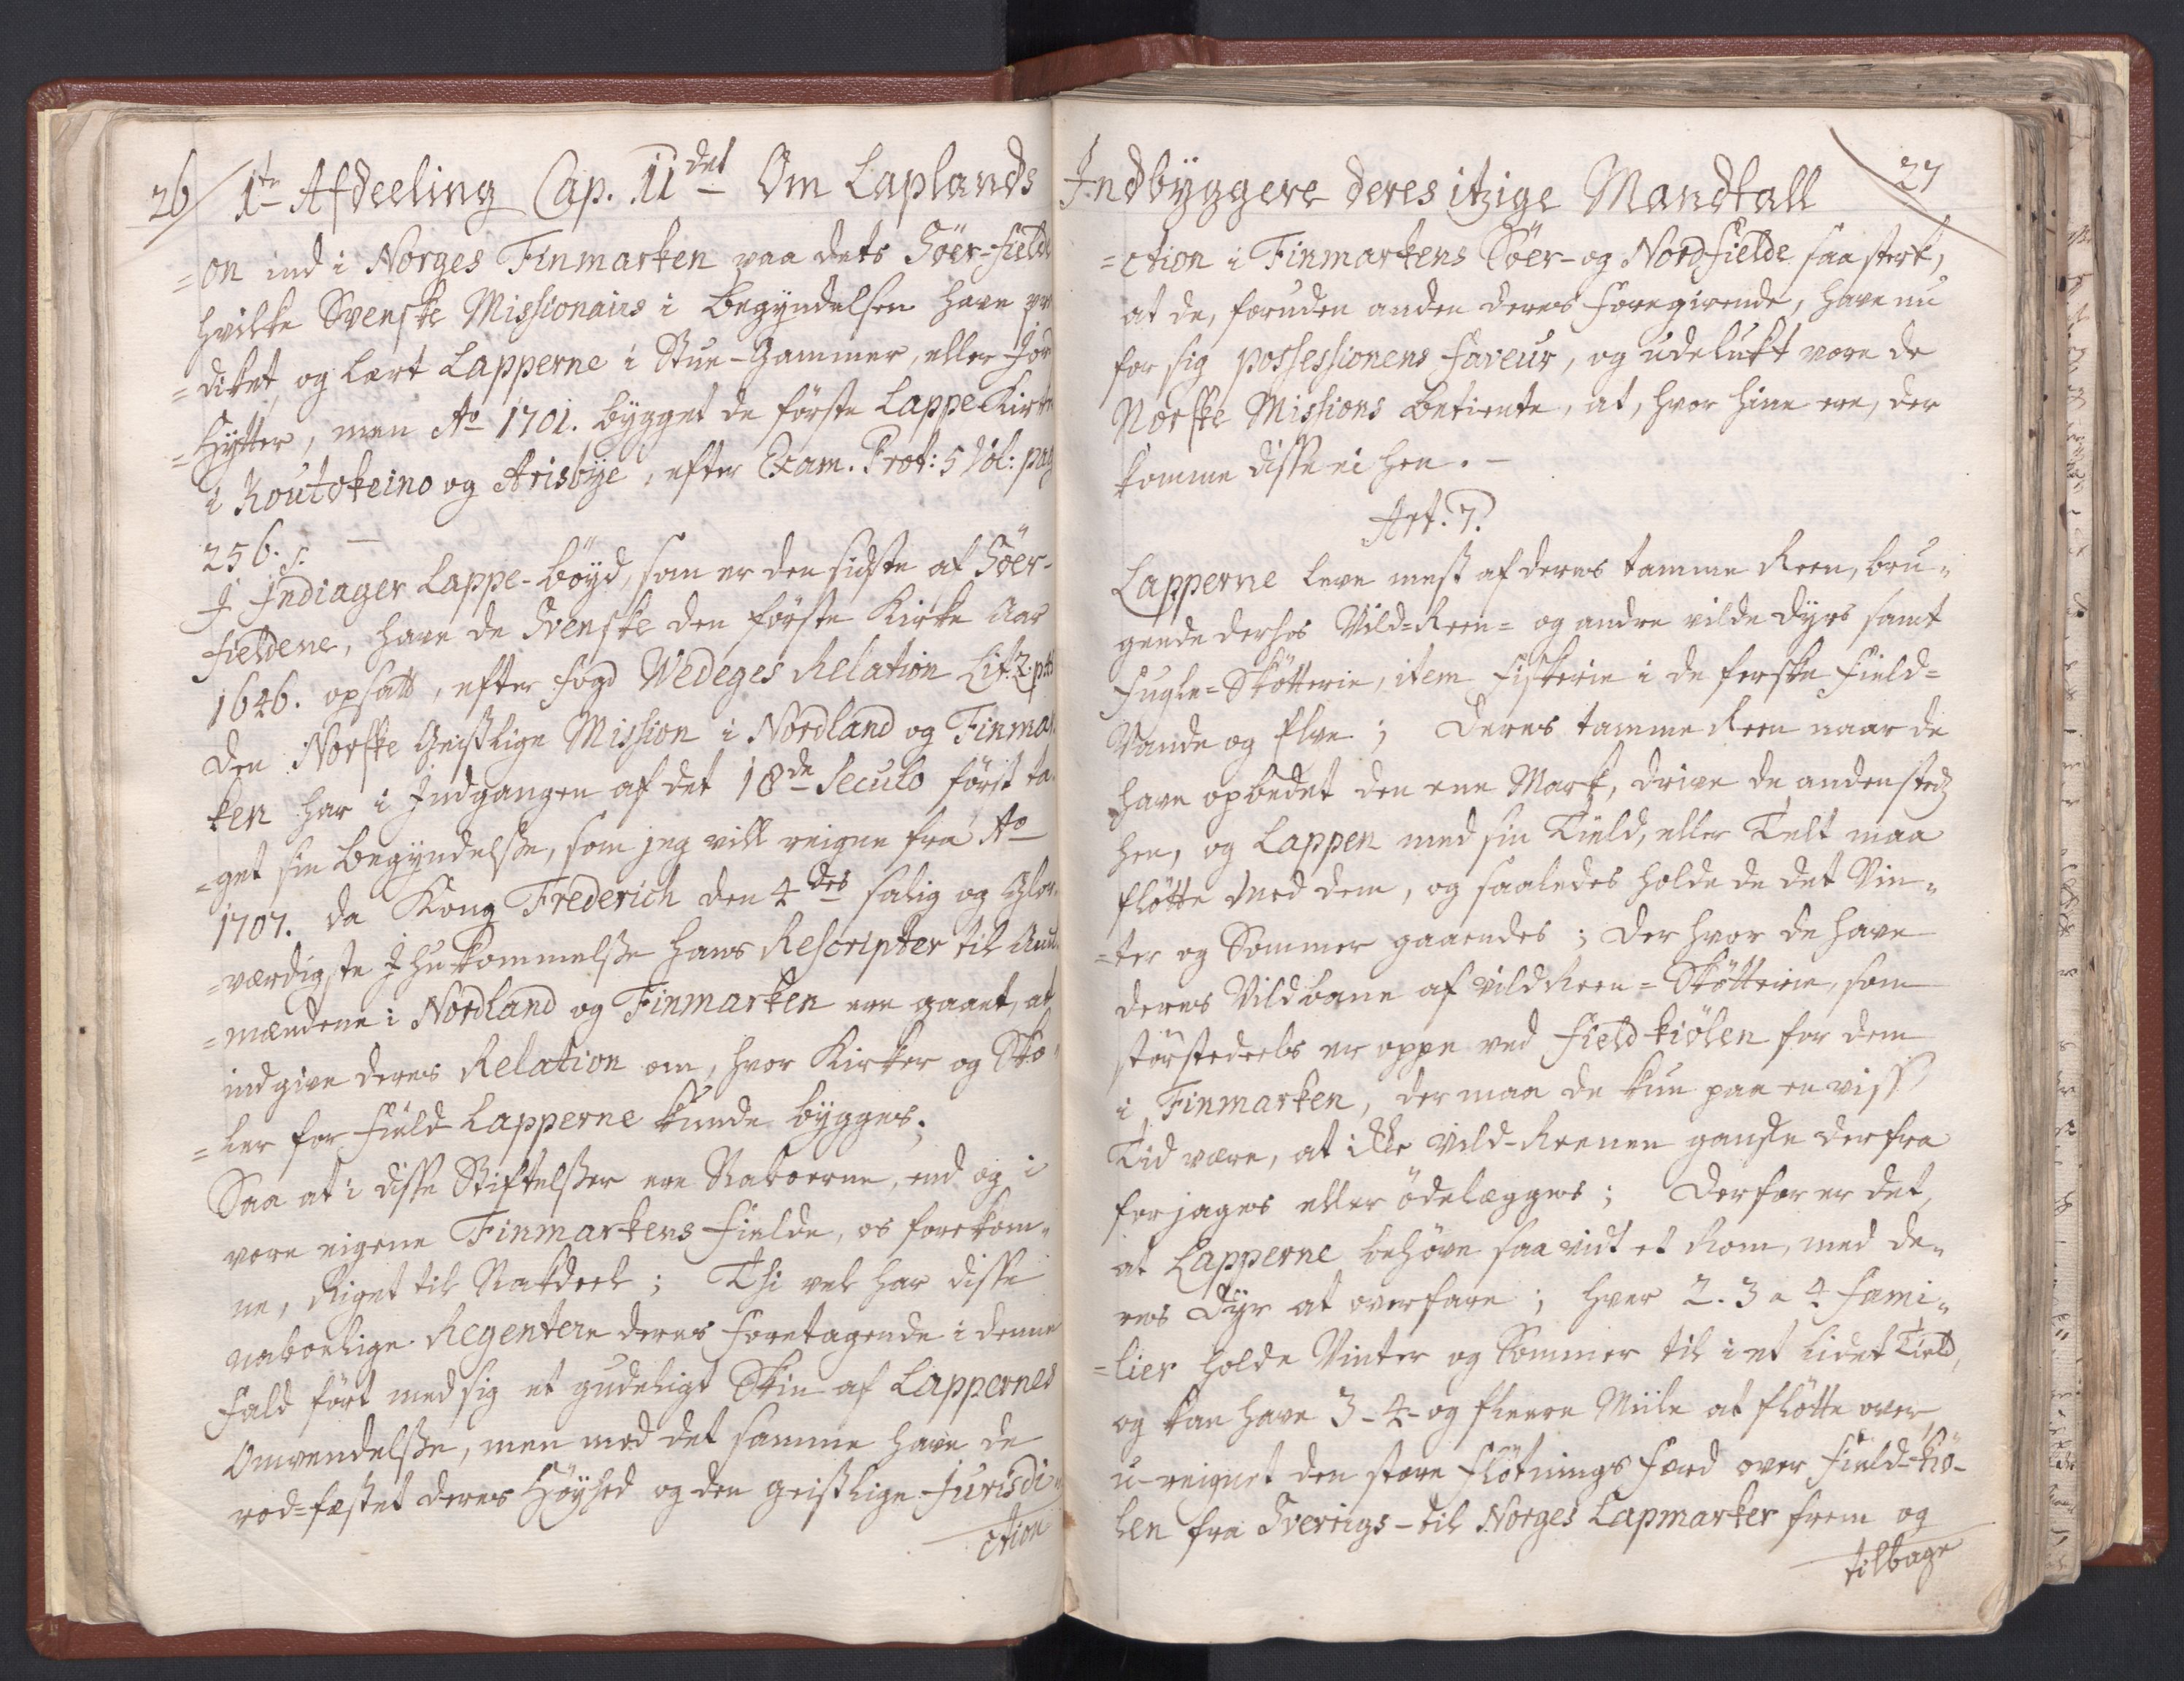 26
1te Afdeeling Cap. 11det Om Laplands
=on ind i Norges Finmarken paa dets Söer-Fielde
hvilke Svenske Missionairs i Begyndelsen have præ
=diket og lært Lapperne i Stue-Gammer, eller Jor
=Hytter, men Ao 1701. bygget de förste Lappe Kirke
i Koutokeino og Arisbye, efter Exam. Prot: 5 Vol: pag
256. s.
I Indiager Lappe-böyd, som er den sidste af Söer-
fieldene, have de Svenske den förste Kirke Aar
1646. opsatt, efter Fogd Wedeges Relation Lit. Z.
Den Norske Geistlige Mission i Nordland og Finmar
ken har i Indgangen af det 18de Seculo först ta-
=get sin Begyndelsse, som jeg vill reigne fra Ao
1707. da Kong Frederich den 4des salig og Glor
=værdigste Ihukommelsse hans Rescripter til Amt
=mændene i Nordland og Finmarken ere gaaet, at
indgive deres Relation om, hvor Kirker og Sko-
=ler for Field Lapperne kunde bygges.
Saa at i disse Stiftelsser ere Naboerne, end og i
vore eigene Finmarkens Fielde, os forekom-
ne, Riget til Nakdeel; Thi vel har disse
naboelige Regentere deres Foretagende i denne
Fald fört med sig et gudeligt Skin af Lappernes
Omvendelsse, men med det samme have de
rod=fæstet deres Höyhed og den geistlige Jurisdi-
ction
Indbyggere deres itzige Mandtall
27
=ction i Finmarkens Söer- og Nordfielde saa sterk,
at de, foruden anden deres Foregivende, have nu
for sig possessionens faveur, og udelukt vore de
Norske Missions Betiente, at, hvor hine ere, der
komme disse ei hen.
Art. 7.
Lapperne leve mest af deres tamme Reen, bru-
gende derhos Vild=Reen= og andre vilde Dyrs samt
Fugle=Skötterie, item Fiskerie i de ferske Field=
Vande og Elve; Deres tamme Reen naar de
have opbedet den ene Mark, drive de andensteds
hen, og Lappen med sin Tield, eller Telt maa
flötte med dem, og saaledes holde de det Vin-
=ter og Sommer gaaendes; Der hvor de have
deres Vildbane af vild Reen=Skötterie, som
störstedeels er oppe ved Fieldkiölen for dem
i Finmarken, der maa de kun paa en viss
Tid være, at ikke Vild-Reenen ganske derfra
forjages eller ödelægges; Derfor er det,
at Lapperne behöve saa vidt et Rom, med de-
res Dyr at overfare; hver 2. 3 a 4 Fami-
=lier holde Vinter og Sommer til i et lidet Tield,
og kan have 3-4- og fleere Miile at flötte over
u-reignet den store Flötnings Færd over Field-Kiö-
len fra Sverrigs- til Norges Lapmarker frem og
tilbage